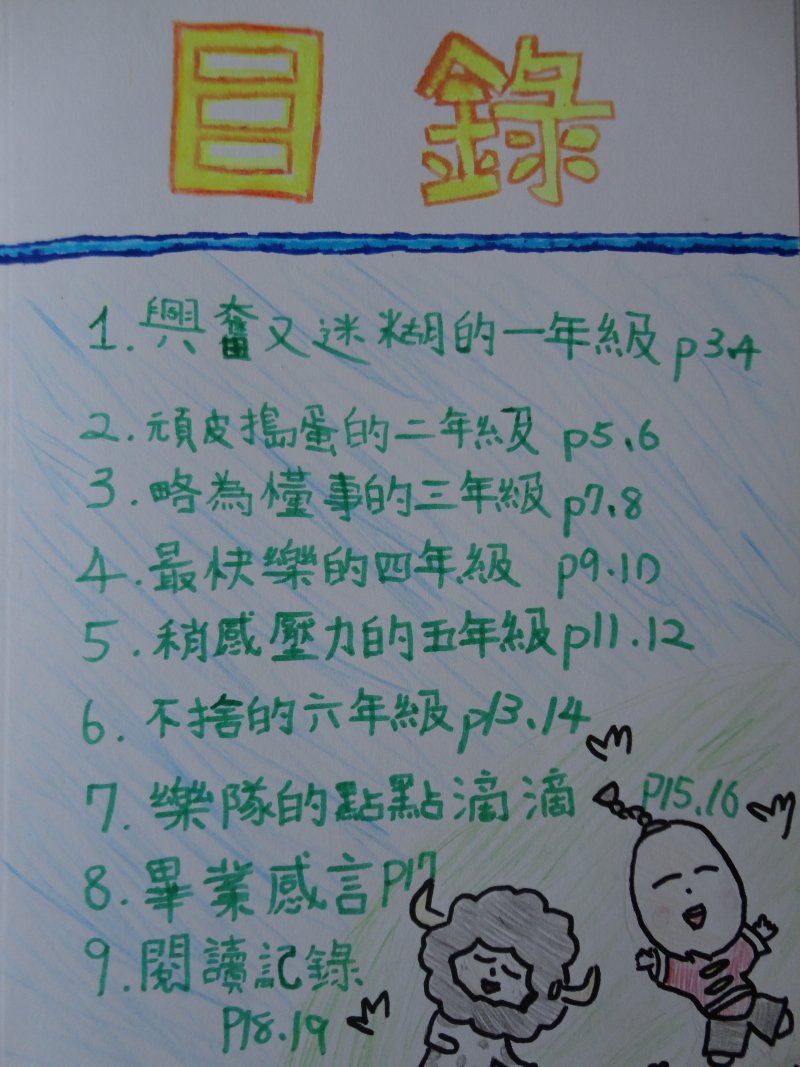 目錄
1. 興奮又迷糊的一年級 p3.4
2. 頑皮搗蛋的二年級 p5.6
3. 略為懂事的三年級 p7.8
4. 最快樂的四年級 p9.10
5. 稍感壓力的五年級 p11.12
6. 不捨的六年級 p13.14
7. 樂隊的點點滴滴 P15.16
8. 畢業感言 P17
9. 閱讀記錄
P18.19